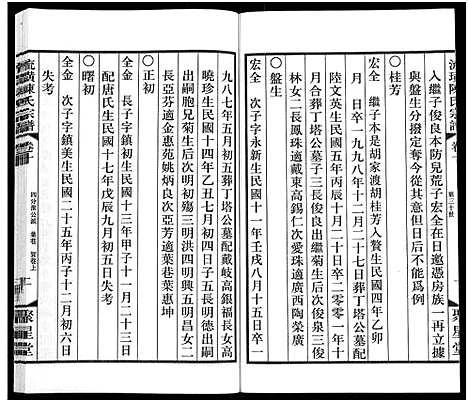 流璜陳氏宗譜 卷十
第三十世
人繼子俊良本防兒荒子宏全在日邀憑房族一再立據
與盤生分撥定奪今從其意但日后不能爲例
○桂芳
宏全 繼子本是胡家渡胡桂芳入贅生民國四年乙卯
月 日卒一九九八年十二月二十七日葬丁塔公墓配
陸文英生民國五年丙辰十月 日卒二零零一年十
月合葬丁塔公墓子三長俊良出繼菊生后次俊泉三俊
林女二長瑪麗適戴東高錫仁次愛珠適廣西陶榮廣
盤生 次子字永新生民國十一年壬戌八月十五日卒一
九八七年五月初五日葬丁塔公墓配戴岐高銀福長女
曉珍生民國十四年乙丑七月初六子五長明德出嗣
出嗣胞兄菊生后次明初殤三明洪四明興五明昌女二
長亞芬適金惠苑姚炳良次亞芳適葉巷葉惠坤
○正初
全金 長子字鎮初生民國十三年甲子十一月二十三日
配唐氏生民國十七年戊辰九月初五日失考
○曙初
全金 次子字鎮美生民國二十五年丙子十二月初六日
失考
流璜陳氏宗譜 卷十
四分淮公派 葉巷 質卷上
聚星堂